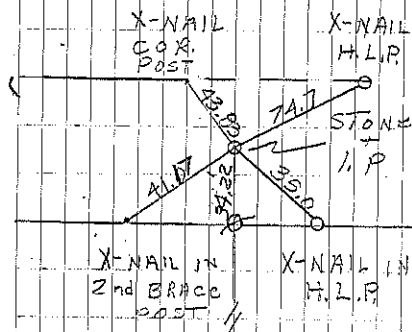 X-NAIL
COR.
POST
X-NAIL
H.L.P.
43.93
74.7
STONE
+
I.P.
41.17
34.22
35.0
X-NAIL IN
2nd BRACE
POST
X-NAIL IN
H.L.P.